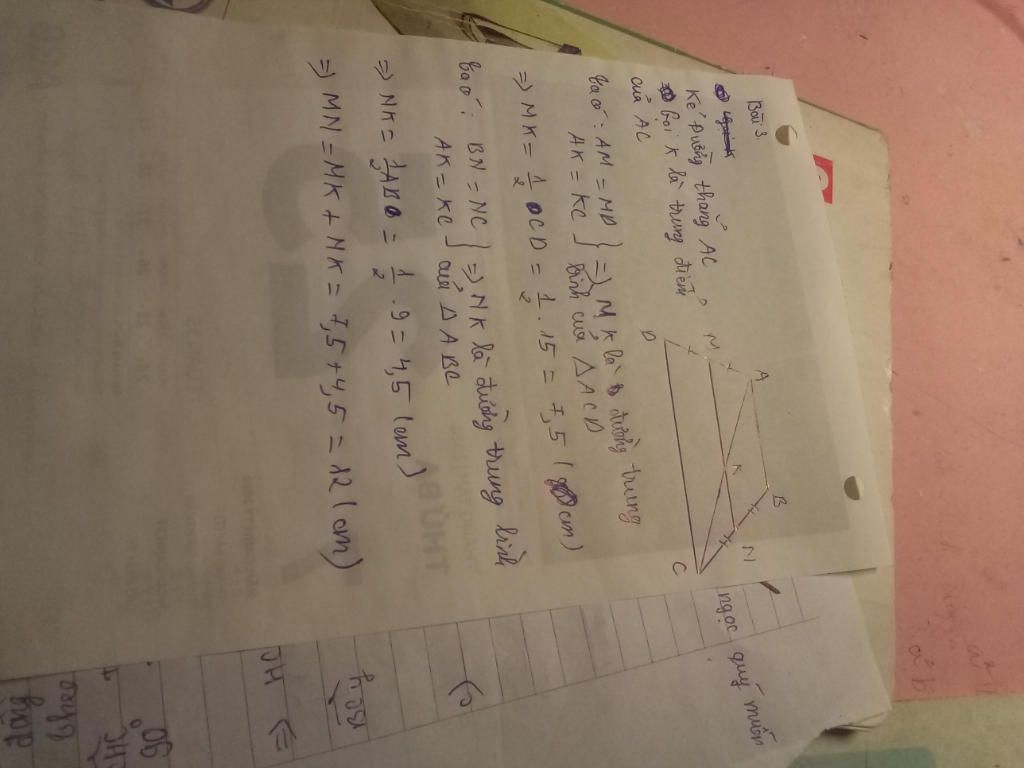 Bài 3
Kẻ đường thẳng AC
Gọi K là trung điểm
của AC
Ta có: AM = MD } => MK là đường trung
AK = KC } bình của △ACD
=> MK = 1/2 CD = 1/2 . 15 = 7,5 (cm)
Ta có: BN = NC } => NK là đường trung bình
AK = KC } của △ABC
=> NK = 1/2 AB = 1/2 . 9 = 4,5 (cm)
=> MN = MK + NK = 7,5 + 4,5 = 12 (cm)
A
B
M
K
N
D
C
ngọc quý muốn
=>
90°